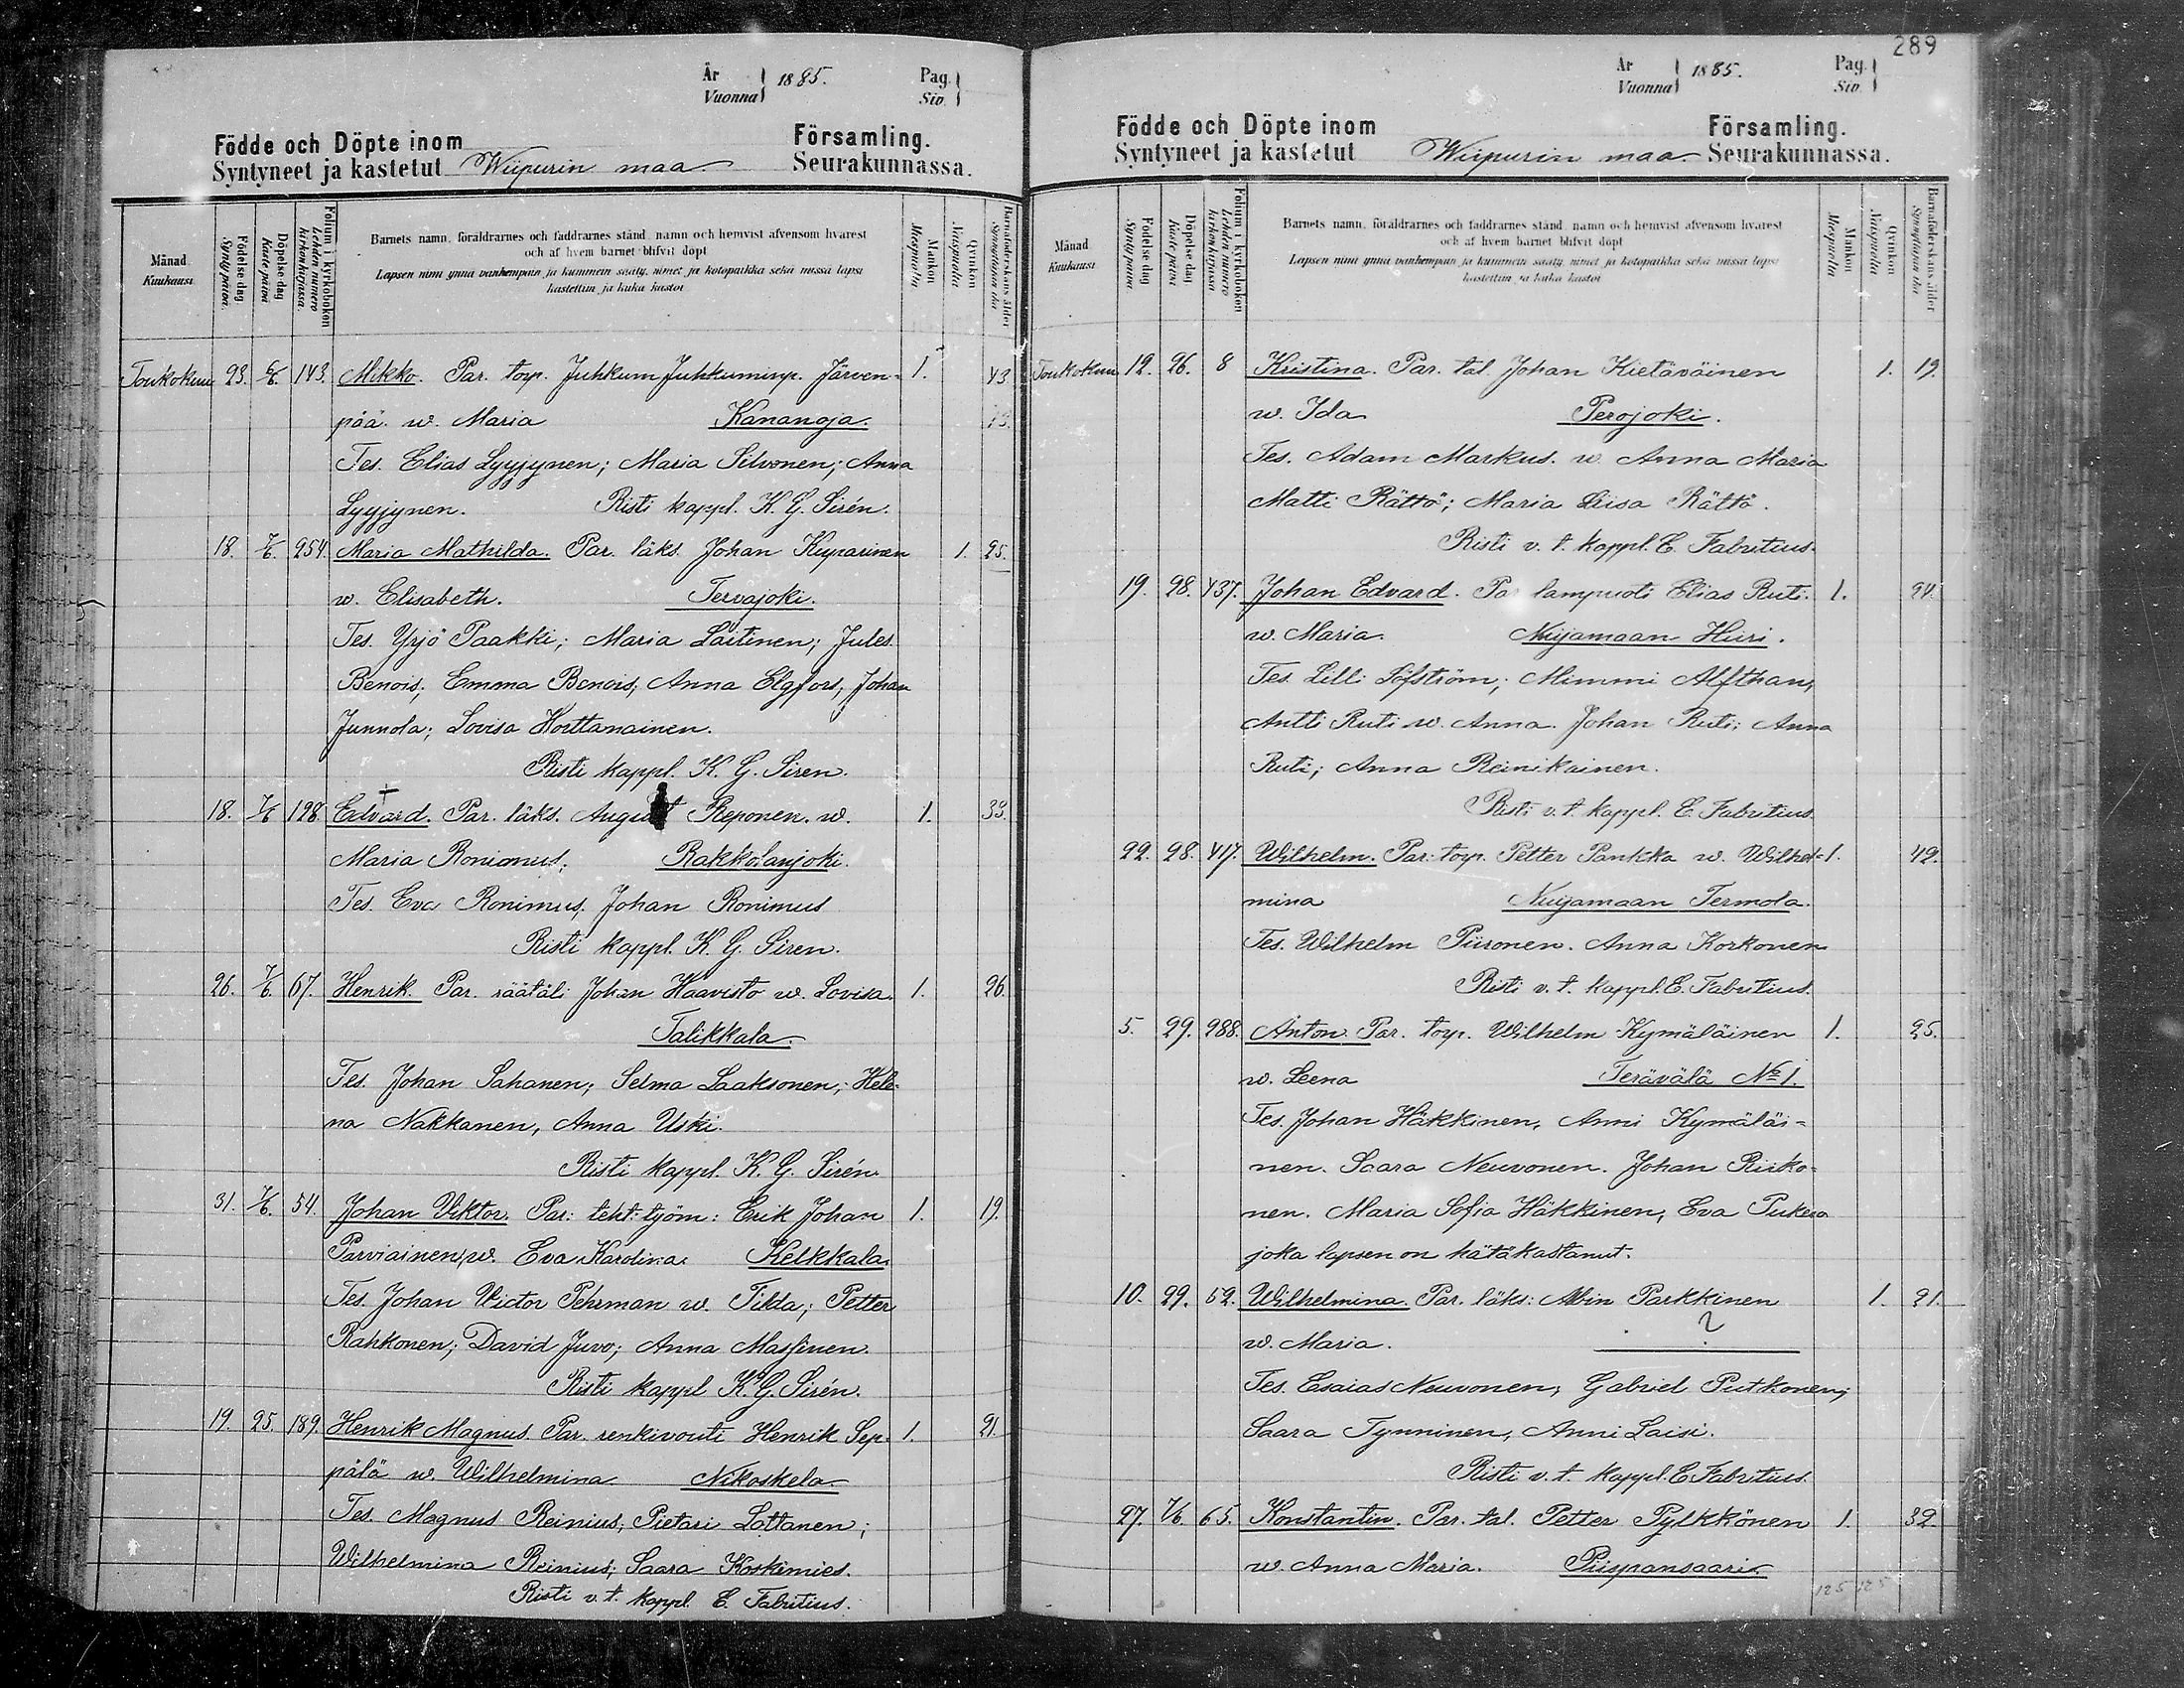 År
Vuonna } 1885. Pag.
Siv. }
Födde och Döpte inom Församling.
Syntyneet ja kastetut Wiipurin maa Seurakunnassa.
Månad
Kuukausi
Födelse dag
Syntypäivä.
Döpelse dag
Kaste päivä
Folium i kyrkoboken
Lehden numero
kirkonkirjassa.
Barnets namn, föräldrarnes och faddrarnes stånd namn och hemvist äfvensom hvarest
och af hvem barnet blifvit döpt
Lapsen nimi ynnä vanhempain ja kummein sääty, nimet ja kotopaikka sekä missä lapsi
kastettiin ja kuka kastoi
Mankön
Miespuolta
Qvinkön
Naispuolta
Barnaföderskans ålder
Synnyttäjän ikä
Toukokuu 23. 6/6. 143. Mikko. Par. torp. Juhkum Juhkuminp. Järven- 1. 43
pää. w. Maria Kananoja.
Tes. Elias Lyyjynen; Maria Silvonen; Anna
Lyyjynen. Risti kappl. K. G. Sirén.
18. 7/6. 254. Maria Mathilda. Par. läks. Johan Kuparinen 1. 25.
w. Elisabeth. Tervajoki.
Tes. Yrjö Paakki; Maria Laitinen; Jules
Benois; Emma Benois; Anna Elgfors; Johan
Junnola; Lovisa Horttanainen.
Risti kappl. K. G. Siren.
18. 7/6 128. Edvard. Par. läks. August Reponen. w. 1. 33.
Maria Ronimus; Rakkolanjoki.
Tes. Eva Ronimus, Johan Ronimus
Risti kappl. K. G. Siren.
26. 7/6. 67. Henrik. Par. räätäli Johan Haavisto w. Lovisa. 1. 26.
Talikkala.
Tes. Johan Sahanen; Selma Laaksonen; Hele-
na Nakkanen, Anna Uski.
Risti kappl. K. G. Sirén.
31. 7/6. 54. Johan Viktor. Par: teht: työm: Erik Johan 1. 19.
Parviainen, w. Eva Karolina. Kelkkala.
Tes. Johan Victor Pehrman w. Tilda; Petter
Rahkonen; David Juvo; Anna Massinen.
Risti kappl K. G. Sirén.
19. 25. 189. Henrik Magnus. Par. renkivouti Henrik Sep- 1. 21.
pälä w. Wilhelmina. Nikoskela.
Tes. Magnus Reinius; Pietari Lottanen;
Wilhelmina Reinius; Saara Koskimies.
Risti v. t. kappl. E. Fabritius.
289
År
Vuonna } 1885. Pag.
Siv. }
Födde och Döpte inom Församling.
Syntyneet ja kastetut Wiipurin maa Seurakunnassa.
Månad
Kuukausi
Födelse dag
Syntypäivä
Döpelse dag
Kaste päivä
Folium i kyrkoboken
Lehden numero
kirkonkirjassa
Barnets namn, föräldrarnes och faddrarnes stånd namn och hemvist äfvensom hvarest
och af hvem barnet blifvit döpt
Lapsen nimi ynnä vanhempain ja kummein sääty, nimet ja kotopaikka sekä missä lapsi
kastettiin ja kuka kastoi
Mankön
Miespuolta
Qvinkön
Naispuolta
Barnaföderskans ålder
Synnyttäjän ikä
Toukokuu 12. 26. 8 Kristina. Par. tal. Johan Kietäväinen 1. 19.
w. Ida Perojoki.
Tes. Adam Markus. w. Anna Maria
Matti Rättö; Maria Liisa Rättö.
Risti v. t. kappl. E. Fabritius.
19. 28. 437. Johan Edvard. Par lampuoti Elias Ruti. 1. 24.
w. Maria. Nuijamaan Huri.
Tes. Lilli Löfström; Mimmi Alfthan,
Antti Ruti w. Anna. Johan Ruti; Anna
Ruti; Anna Reinikainen.
Risti v. t. kappl. E. Fabritius.
22. 28. 417. Wilhelm. Par: torp. Petter Pankka w. Wilhel- 1. 42.
mina Nuijamaan Termola.
Tes. Wilhelm Piironen. Anna Korkonen
Risti v. t. kappl. E. Fabritius.
5. 29. 288. Anton. Par. torp. Wilhelm Kymäläinen 1. 25.
w. Leena Terävälä No 1.
Tes. Johan Häkkinen, Anni Kymäläi-
nen. Saara Neuvonen. Johan Rirko-
nen. Maria Sofia Häkkinen, Eva Pukero
joka lapsen on hätäkastanut.
10. 29. 52. Wilhelmina. Par. läks: Albin Parkkinen 1. 21.
w. Maria. ?
Tes. Esaias Neuvonen, Gabriel Putkonen;
Saara Tynninen, Anni Laisi.
Risti v. t. kappl. E Fabritius.
27. 7/6. 65. Konstantin. Par. tal. Petter Pylkkönen 1. 32.
w. Anna Maria. Piispansaari.
125 125